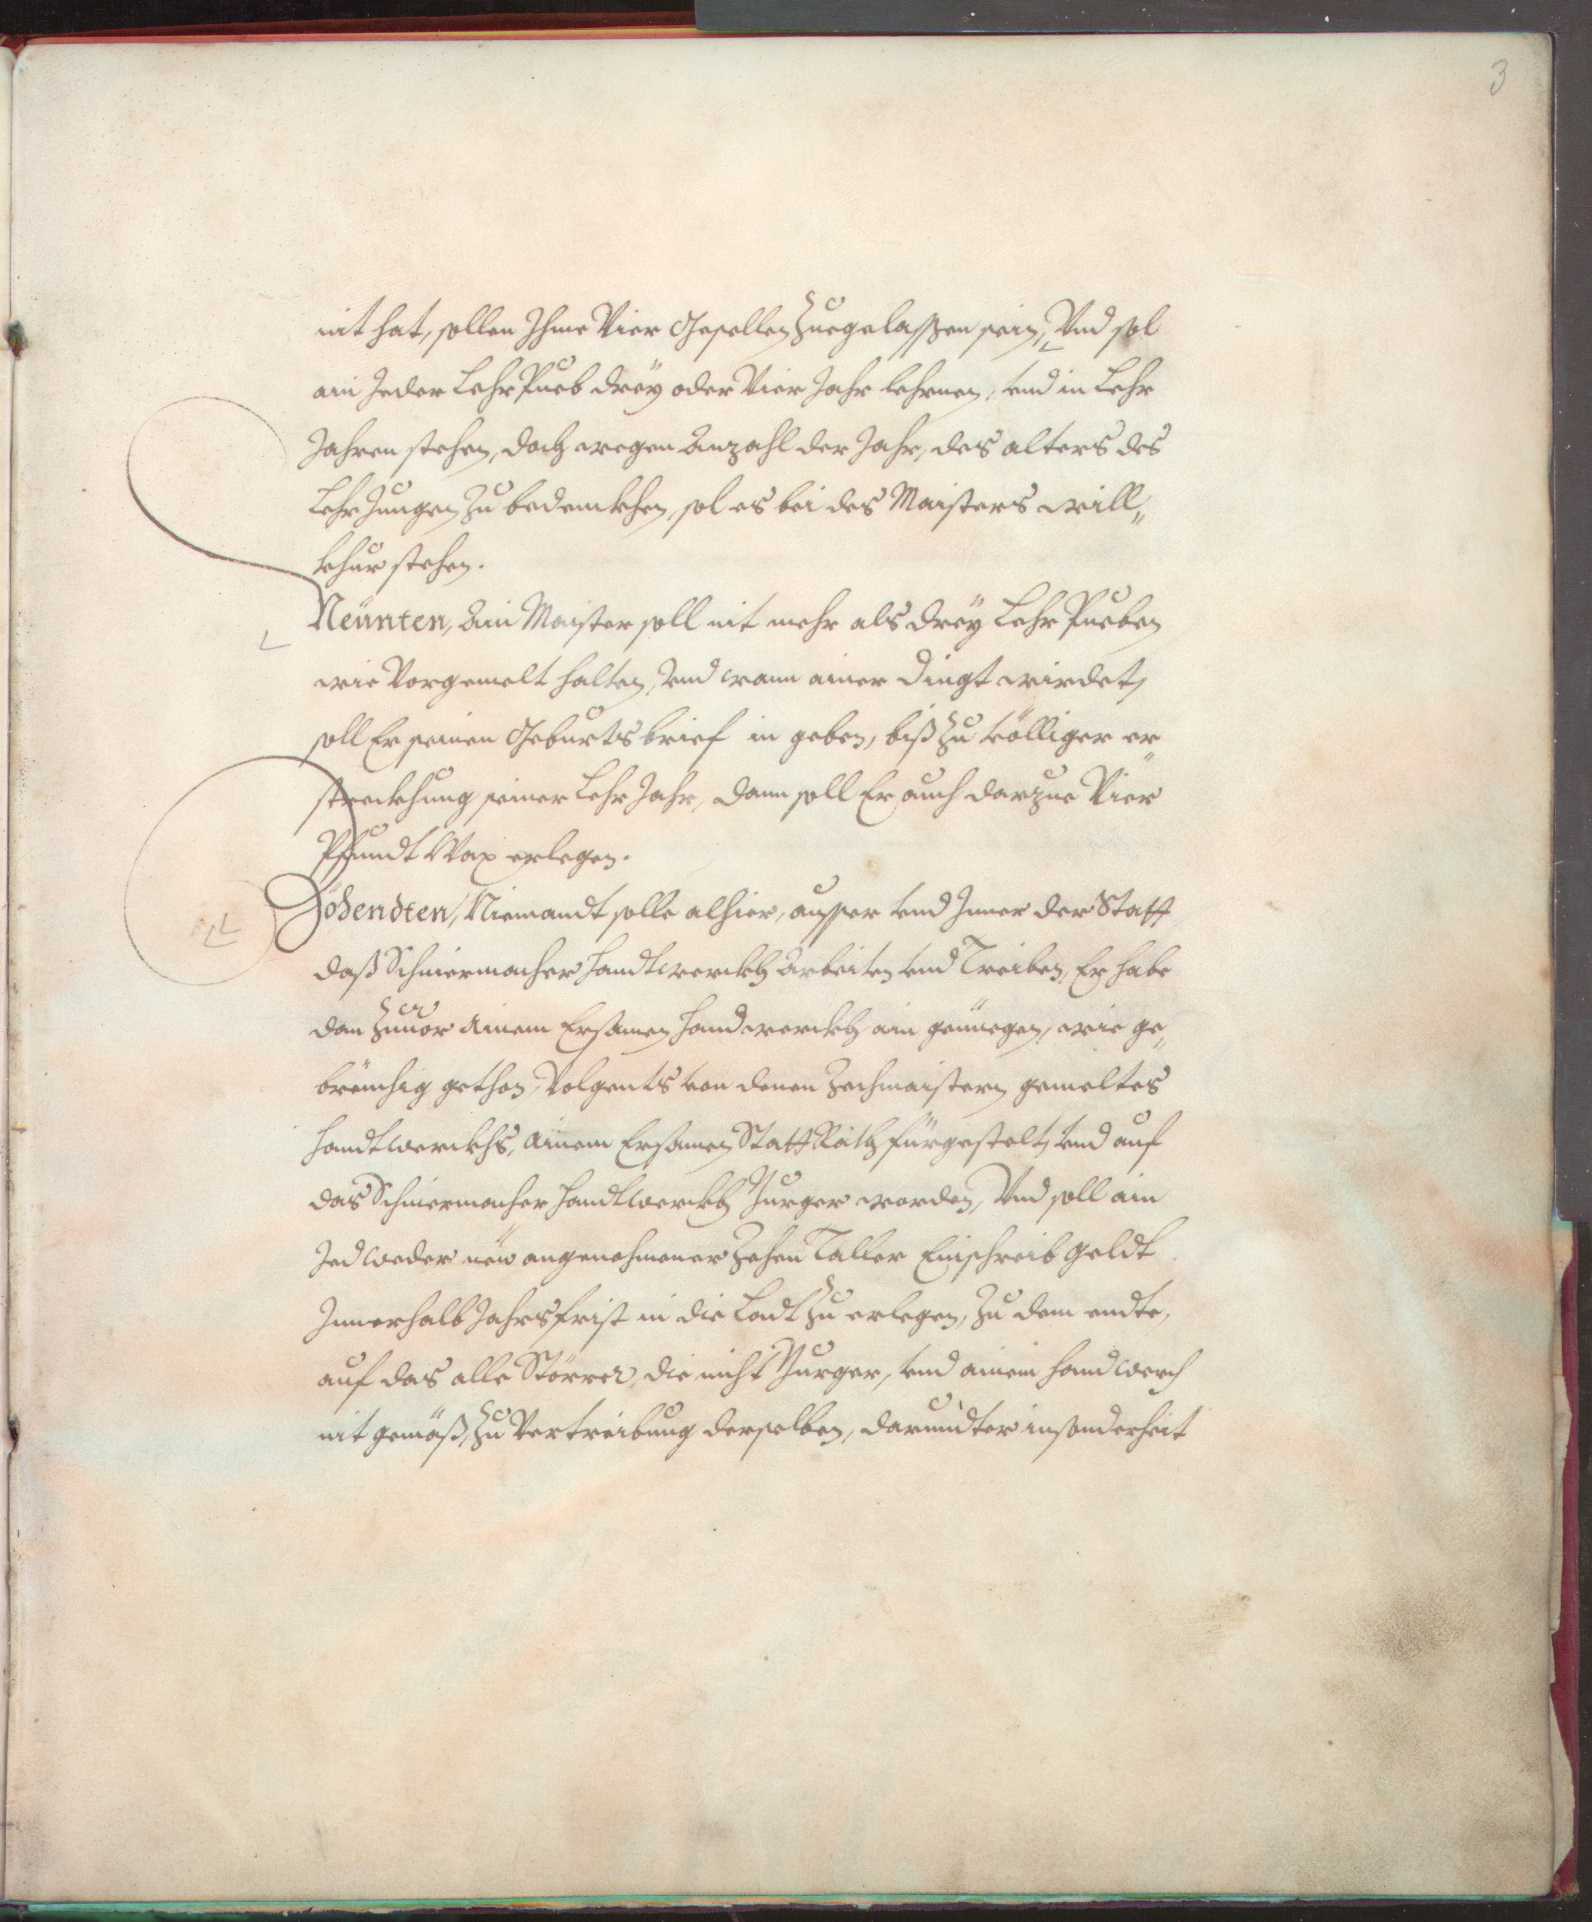 3
nit hat, sollen Ihme Vier Gesellen Zuegelassen sein, Vnd sol
ain Jeder Lehr Pueb drey oder Vier Jahr lehrnen, vnd in Lehr
Jahren stehen, doch wegen Anzahl der Jahr, des alters des
Lehr Jungen Zu bedenckhen, sol es bei des Maisters will„
khur stehen.
Neünten, Ain Maister soll nit mehr als drey Lehr Pueben
wie Vorgemelt halten, Vnd wann ainer Dingt wirdet,
soll Er seinen Geburts brief in geben, biß Zu völliger er
streckhung seiner Lehr Jahr, dann soll Er auch darzue Vier
Pfundt Wax erlegen.
Zöhendten, Niemandt solle alhier, ausser vnd Inner der Statt
daß Schiermacher Handtwerckh Arbeiten vnd Treiben, Er habe
dan Zuuor Ainem Ersamen Handwerckh ain genüegen, wie ge„
breüchig gethon, Volgents von denen Zechmaistern gemeltes
Handtwerckhs, Ainem Ersamen Statt Rath fürgestelt, vnd auf
das Schiermacher Handtwerckh Purger worden, Vnd soll ain
Jedweder neü angenohmener Zehen Taller Einschreib geldt
Innerhalb Jahrsfrist in die Ladt Zu erlegen, Zu dem endte,
auf das alle Störrer, die nicht Purger, vnd ainem Handwerch
nit gemäß, Zu Vertreibung derselben, darundter insonderheit